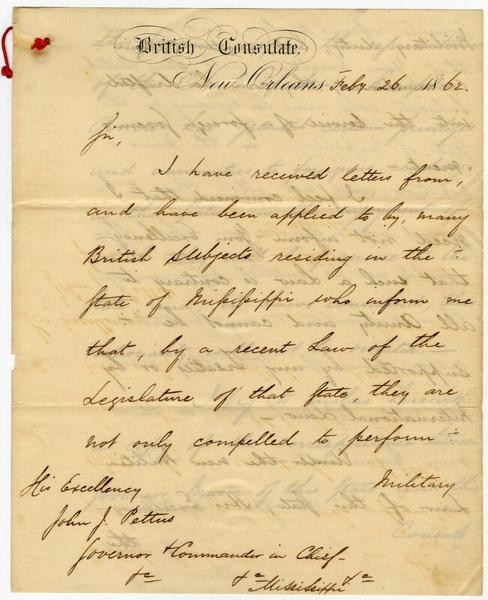 British Consulate.
New Orleans, Feby 26 1862.
Sir,
I have received letters from,
and have been applied to by, many
British Subjects residing in the
State of Mississippi who inform me
that, by a recent Law of the
Legislature of that State, they are
not only compelled to perform
Military
His Excellency
John J. Pettus
Governor & Commander in Chief
&c &c &c
Mississippi